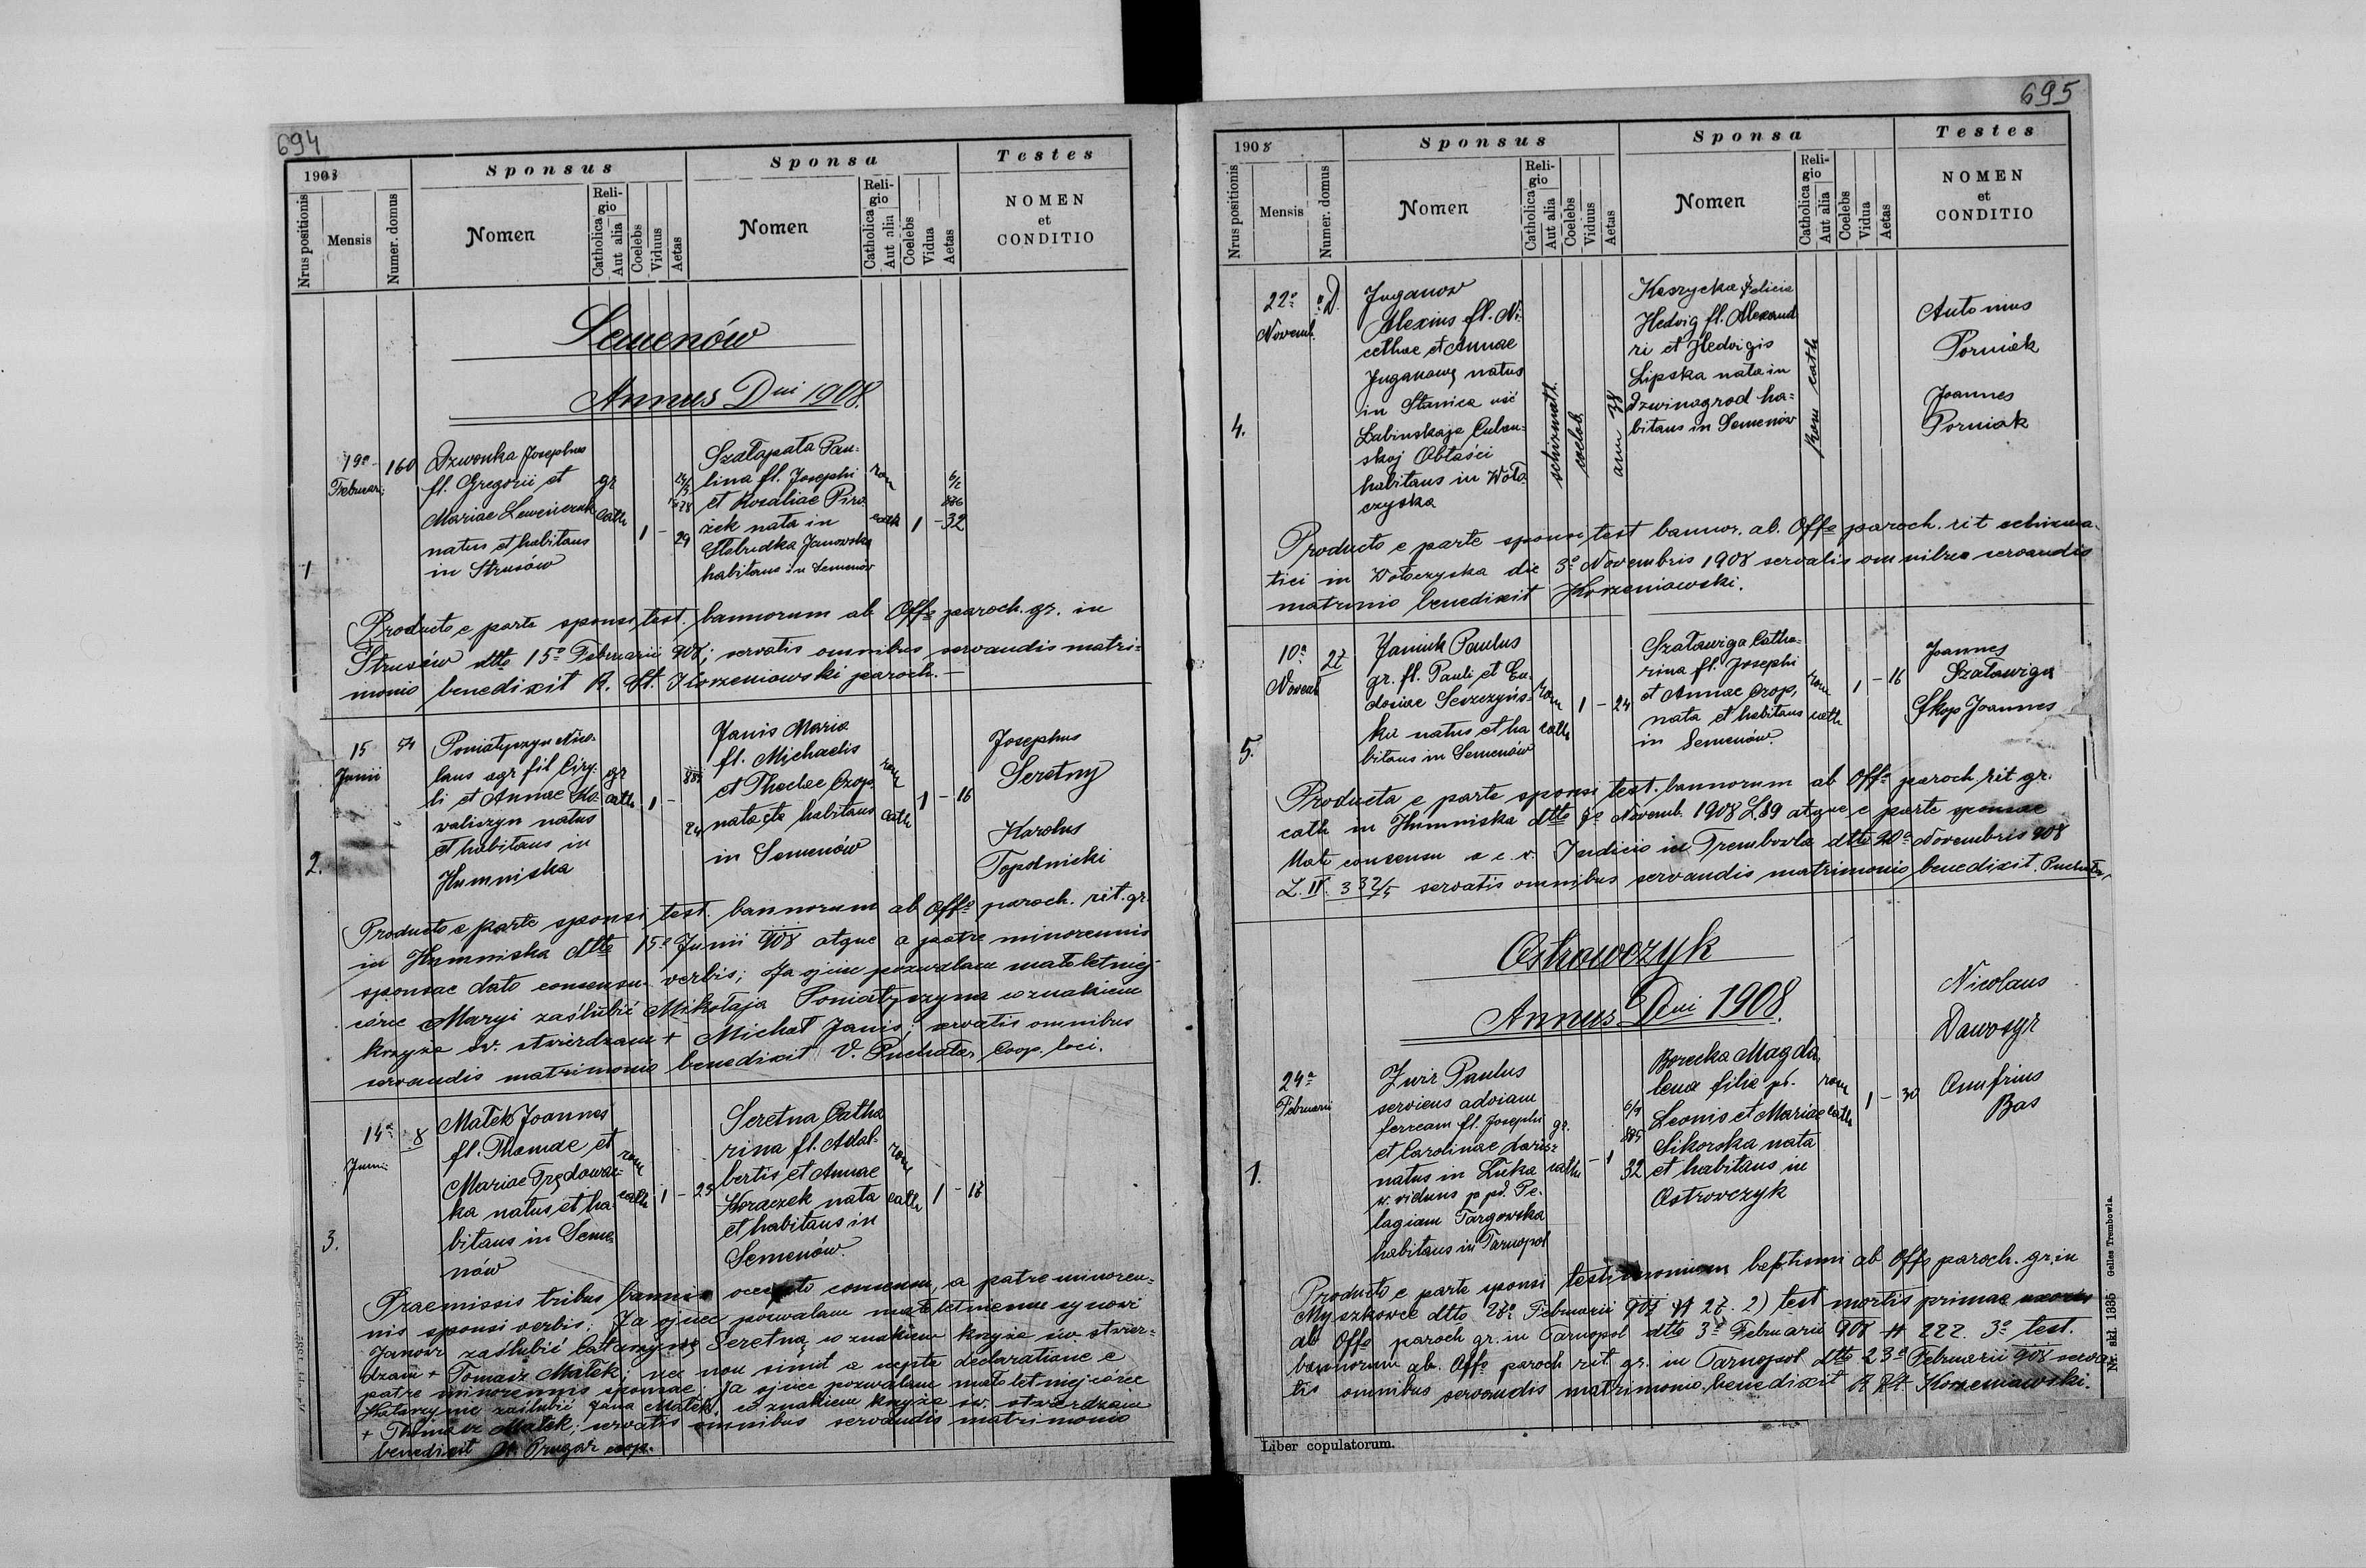 694
1908
Sponsus
Sponsa
Testes
Nrus positionis
Mensis
Numer. domus
Nomen
Religio
Catholica
Aut alia
Coelebs
Viduus
Aetas
Nomen
Religio
Catholica
Aut alia
Coelebs
Vidua
Aetas
NOMEN
et
CONDITIO
Semenów
Annus Dni 1908.
1
19a
Februari
160
Dzwonka Josephus
fl. Gregorii et
Mariae
natus et habitans
in Strusów
gr
cath
1 -
29
Szałapata Pau-
lina fl. Josephi
et Rozaliae Piro-
żek nata in
Janowska
habitans in Semenów
rom
cath
1 - 32
Producto e parte sponsi test. bannorum ab Offo paroch. gr. in
Strusów dtto 15a Februarii 908; servatis omnibus servandis matri-
monio benedixit A. St. Korzeniowski paroch. -
2.
15
Junii
Poniatyszyn Nico-
laus agr fil Ciry-
li et Annae Ko-
waliszyn natus
et habitans in
Humniska
gr
cath
1 -
24
Janis Maria
fl. Michaelis
et Theclae Czop
nata et habitans
in Semenów
rom
cath
1 - 16
Josephus
Seretny
Karolus
Topolnicki
Producto e parte sponsi test. bannorum ab Offo paroch. rit. gr.
in Humniska dtto 15a Junii 908 atque a patre minorennis
sponsae dato consensu verbis; Ja ojciec pozwalam małoletniej
córce Maryi zaślubić Mikołaja Poniatyszyna co znakiem
krzyża św. stwierdzam + Michał Janis; servatis omnibus
servandis matrimonio benedixit V. Puchała, Coop. loci.
3.
14a
Junii
8
Małek Joannes
fl. Thomae et
Mariae Trędowac-
ka natus et ha-
bitans in Seme-
nów
rom
cath
1 - 23
Seretna Catha
rina fl. Adal-
bertis et Annae
Koraczek nata
et habitans in
Semenów.
rom
cath
1 -
Praemissis tribus bannis accepto consensu, a patre minoren-
nis sponsi verbis: Ja ojciec pozwalam małoletniemu synowi
Janowi zaślubić Katarzynę Seretną co znakiem krzyża św. stwier-
dzam + Tomasz Małek; nec non simul accepta declaratione e
patre minorennis sponsae, Ja ojciec pozwalam małoletniej córce
Katarzynie zaślubić Jana Małek, co znakiem krzyża św. stwierdzam
+ Thomasz Małek; servatis omnibus servandis matrimonio
benedixit Prugar coop.
695
1908
Sponsus
Sponsa
Testes
Nrus positionis
Mensis
Numer. domus
Nomen
Religio
Catholica
Aut alia
Coelebs
Viduus
Aetas
Nomen
Religio
Catholica
Aut alia
Coelebs
Vidua
Aetas
NOMEN
et
CONDITIO
4.
22a
Novemb.
Juganow
Alexius fl. Ni-
cethae et Annae
Juganowę natus
in Stanica
Łabinskaje Cuban-
skoj Obłaści
habitans in Woło-
czyska
schizmath.
coeleb.
ann 38
Koszycka Felicia
Hedvig fl. Alexand
ri et Hedvigis
Lipska nata in
Dzwinogrod ha-
bitans in Semenów
rom cath
Antonius
Porniak
Joannes
Porniak
Producto e parte sponsi test bannor. ab. Offo paroch. rit schizma-
tici in Wołoczyska die 3a Novembris 1908 servatis omnibus servandis
matrimonio benedixit Korzeniowski.
5.
10a
Novemb
27
Janiuk Paulus
gr. fl. Pauli et Eu-
dosiae Seszczyńs-
ka natus et ha
bitans in Semenów
rom
cath
1 - 24
Szaławiga Catha-
rina fl. Josephi
et Annae Czop,
nata et habitans
in Semenów.
rom
cath
1 - 16
Joannes
Szaławiga
Skop Joannes
Producta e parte sponsi test. bannorum ab Offo paroch. rit gr.
cath in Humniska dtto Novemb. 1908 L 89 atque e parte sponsae
consensu a c. r. Judicio in Trembowla dtto 20a Novembris 908
L. IV. 332/5 servatis omnibus servandis matrimonio benedixit Puchała,
Ostrowczyk
Annus Dni 1908.
1.
24a
Februarii
Zwir Paulus
serviens ad viam
ferream fl. Josephi
et Carolinae
natus in Łuka
w. viduus p. pd. Pe-
lagiam Targowska
habitans in Tarnopol
gr.
cath
- 1
32
Borecka Magda-
lena filia pd.
Leonis et Mariae
Sikorska nata
et habitans in
Ostrowczyk
rom
cath
1 - 30
Nicolaus
Onufrius
Bas
Producto e parte sponsi testimonium baptismi ab Offo paroch. gr. in
Myszkowce dtto Februarii 908 # 27. 2) test mortis primae uxoris
ab Offo paroch gr. in Tarnopol dtto 3a Februarii 908 # 222. 3o test.
bannorum ab. Offo paroch rit gr. in Tarnopol dtto 23a Februarii 908 serva
tis omnibus servandis matrimonio benedixit A. St. Korzeniowski.
Liber copulatorum.
Nr. skł. 1385 Gelles Trembowla.